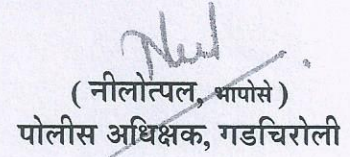 ( नीलोत्पल, भापोसे )
पोलीस अधिक्षक, गडचिरोली